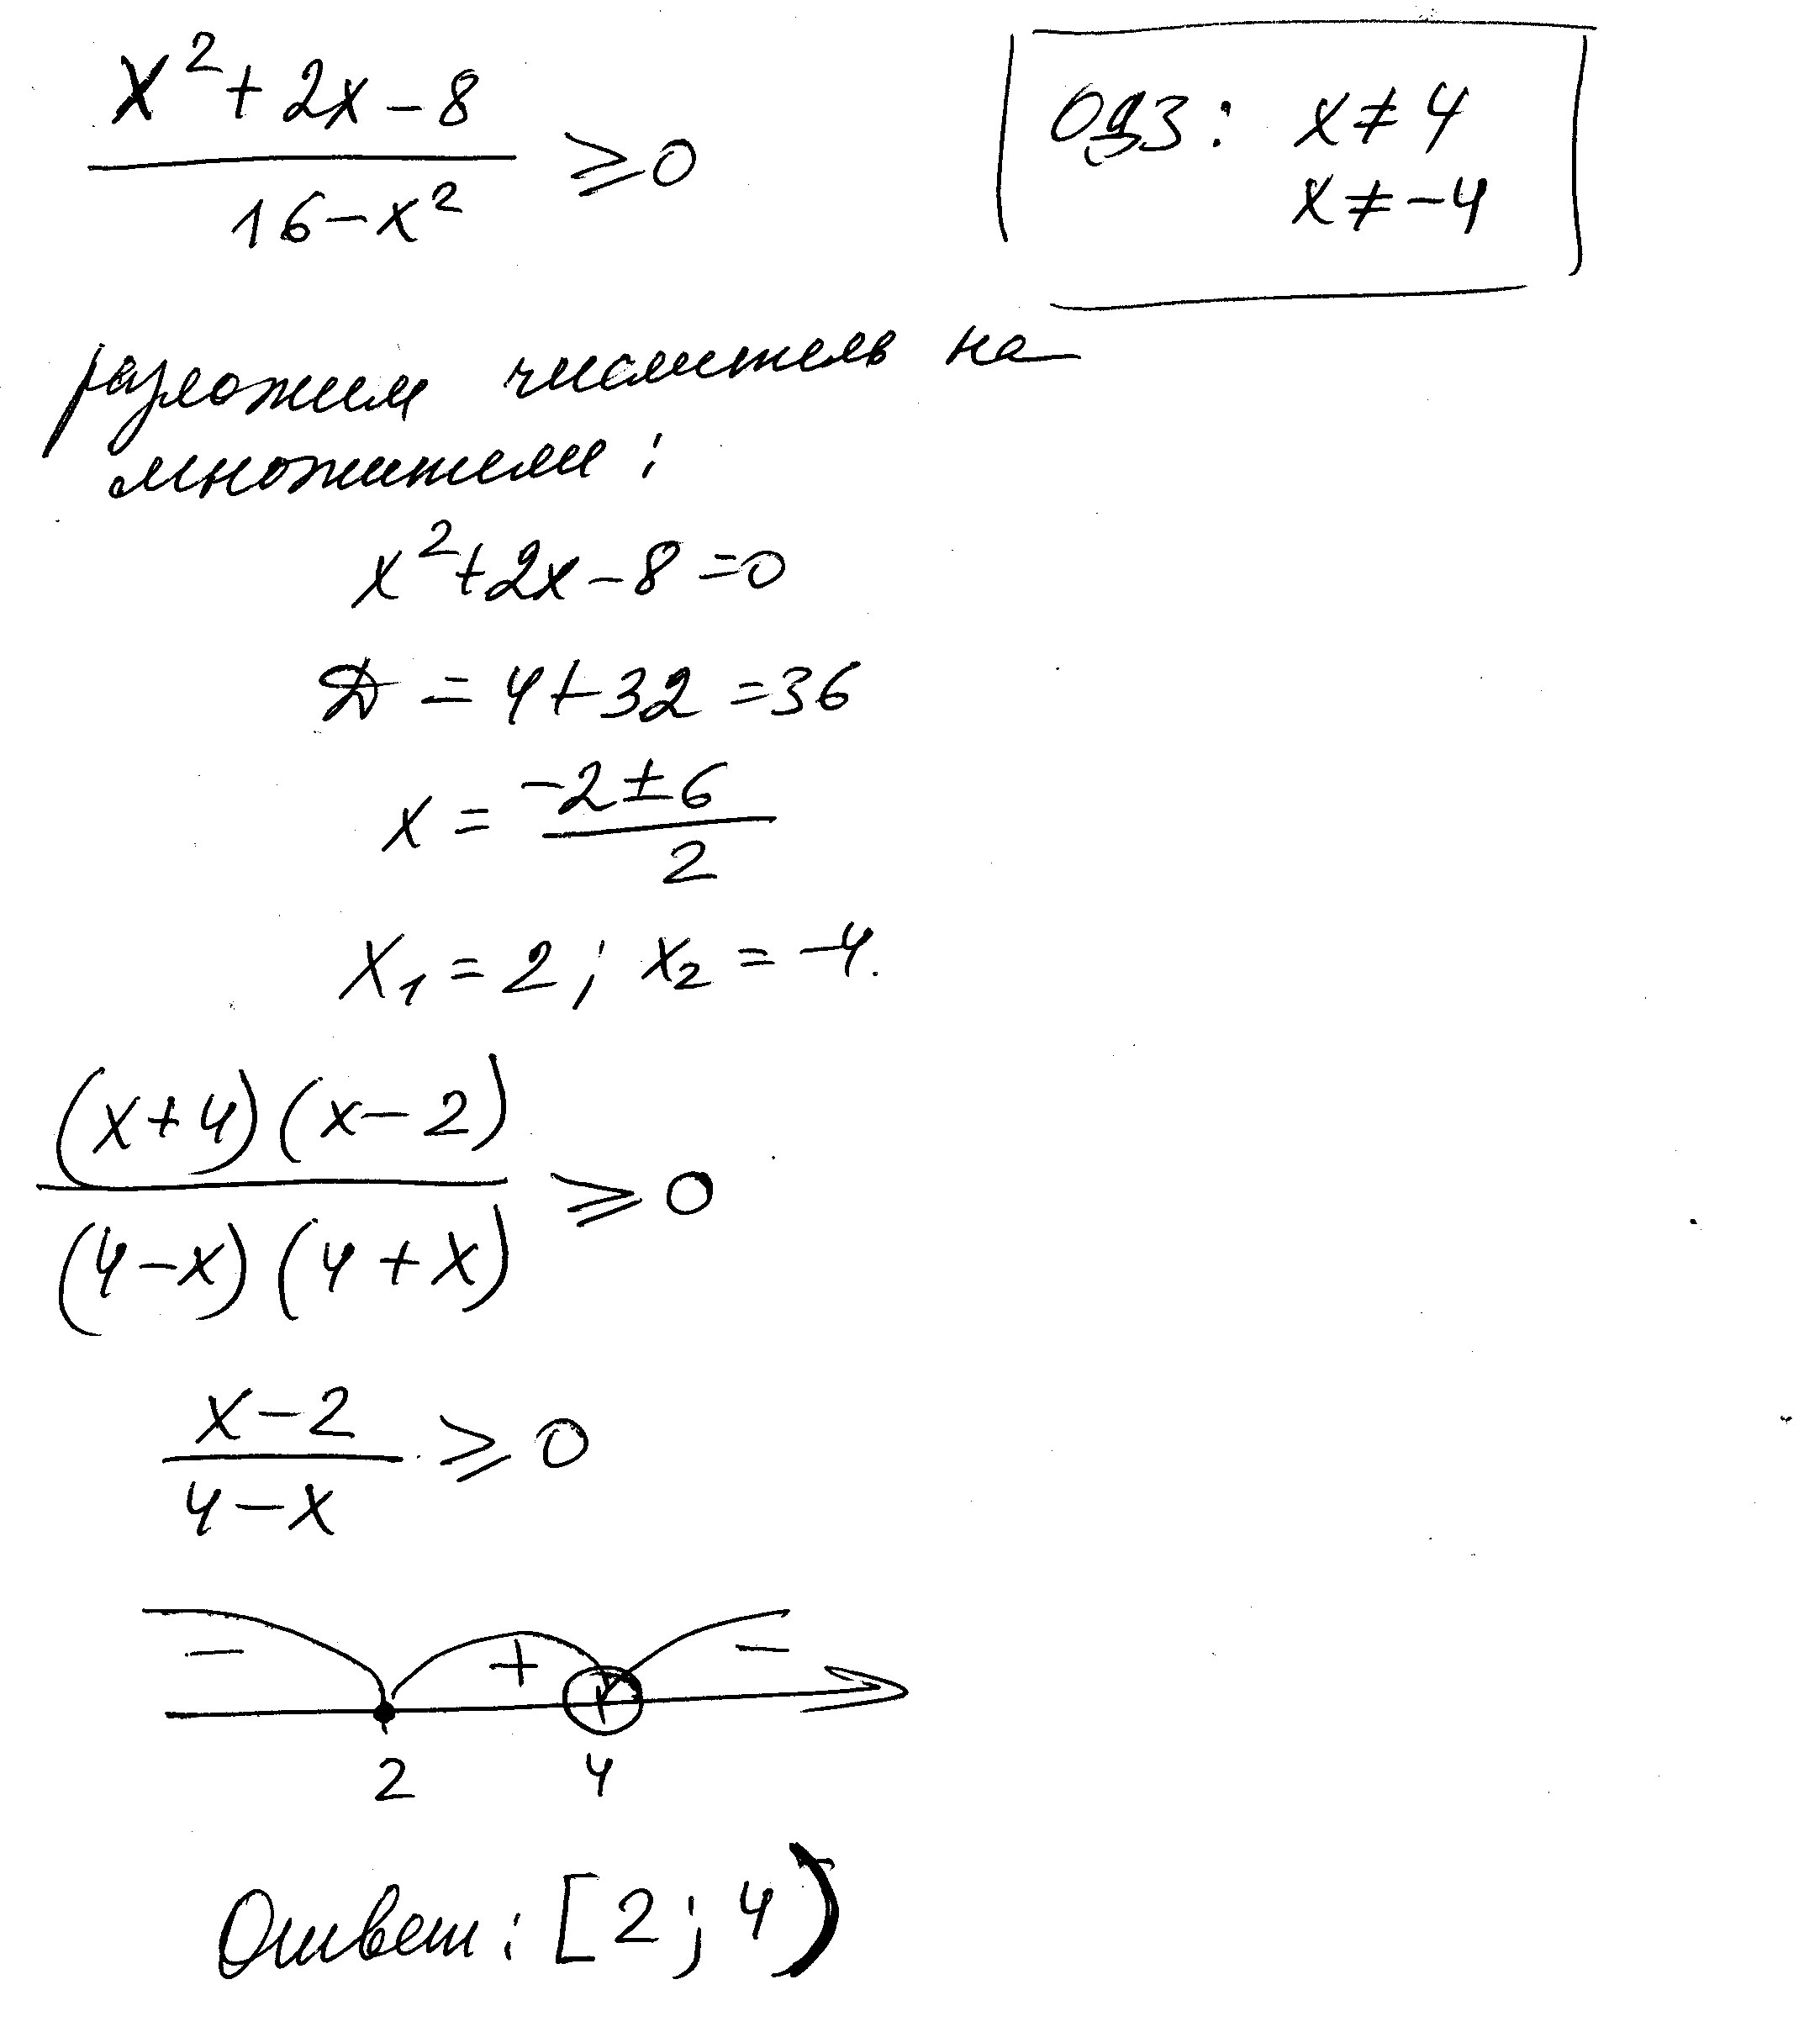 x² + 2x - 8
16 - x²
≥ 0
ОДЗ: x ≠ 4
x ≠ -4
разложим числитель на
множители:
x² + 2x - 8 = 0
D = 4 + 32 = 36
x = (-2 ± 6) / 2
x₁ = 2; x₂ = -4.
(x + 4)(x - 2)
(4 - x)(4 + x)
≥ 0
x - 2
4 - x
≥ 0
- + -
2 4
Ответ: [2; 4)